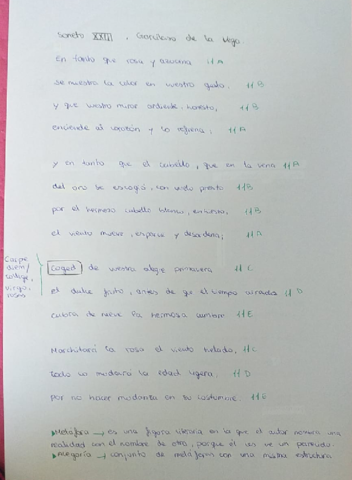 Soneto XXIII, Garcilaso de la Vega.
En tanto que rosa y azucena 11 A
se muestra la color en vuestro gesto, 11 B
y que vuestro mirar ardiente, honesto, 11 B
enciende al corazón y lo refrena; 11 A
y en tanto que el cabello, que en la vena 11 A
del oro se escogió, con vuelo presto 11 B
por el hermoso cuello blanco, enhiesto, 11 B
el viento mueve, esparce y desordena; 11 A
Carpe
diem/
collige,
virgo,
rosas
Coged de vuestra alegre primavera 11 C
el dulce fruto, antes de que el tiempo airado 11 D
cubra de nieve la hermosa cumbre. 11 E
Marchitará la rosa el viento helado, 11 C
todo lo mudará la edad ligera, 11 D
por no hacer mudanza en su costumbre. 11 E
Metáfora → es una figura literaria en la que el autor nombra una
realidad con el nombre de otro, porque él ve un parecido
Alegoría → conjunto de metáforas con una misma estructura